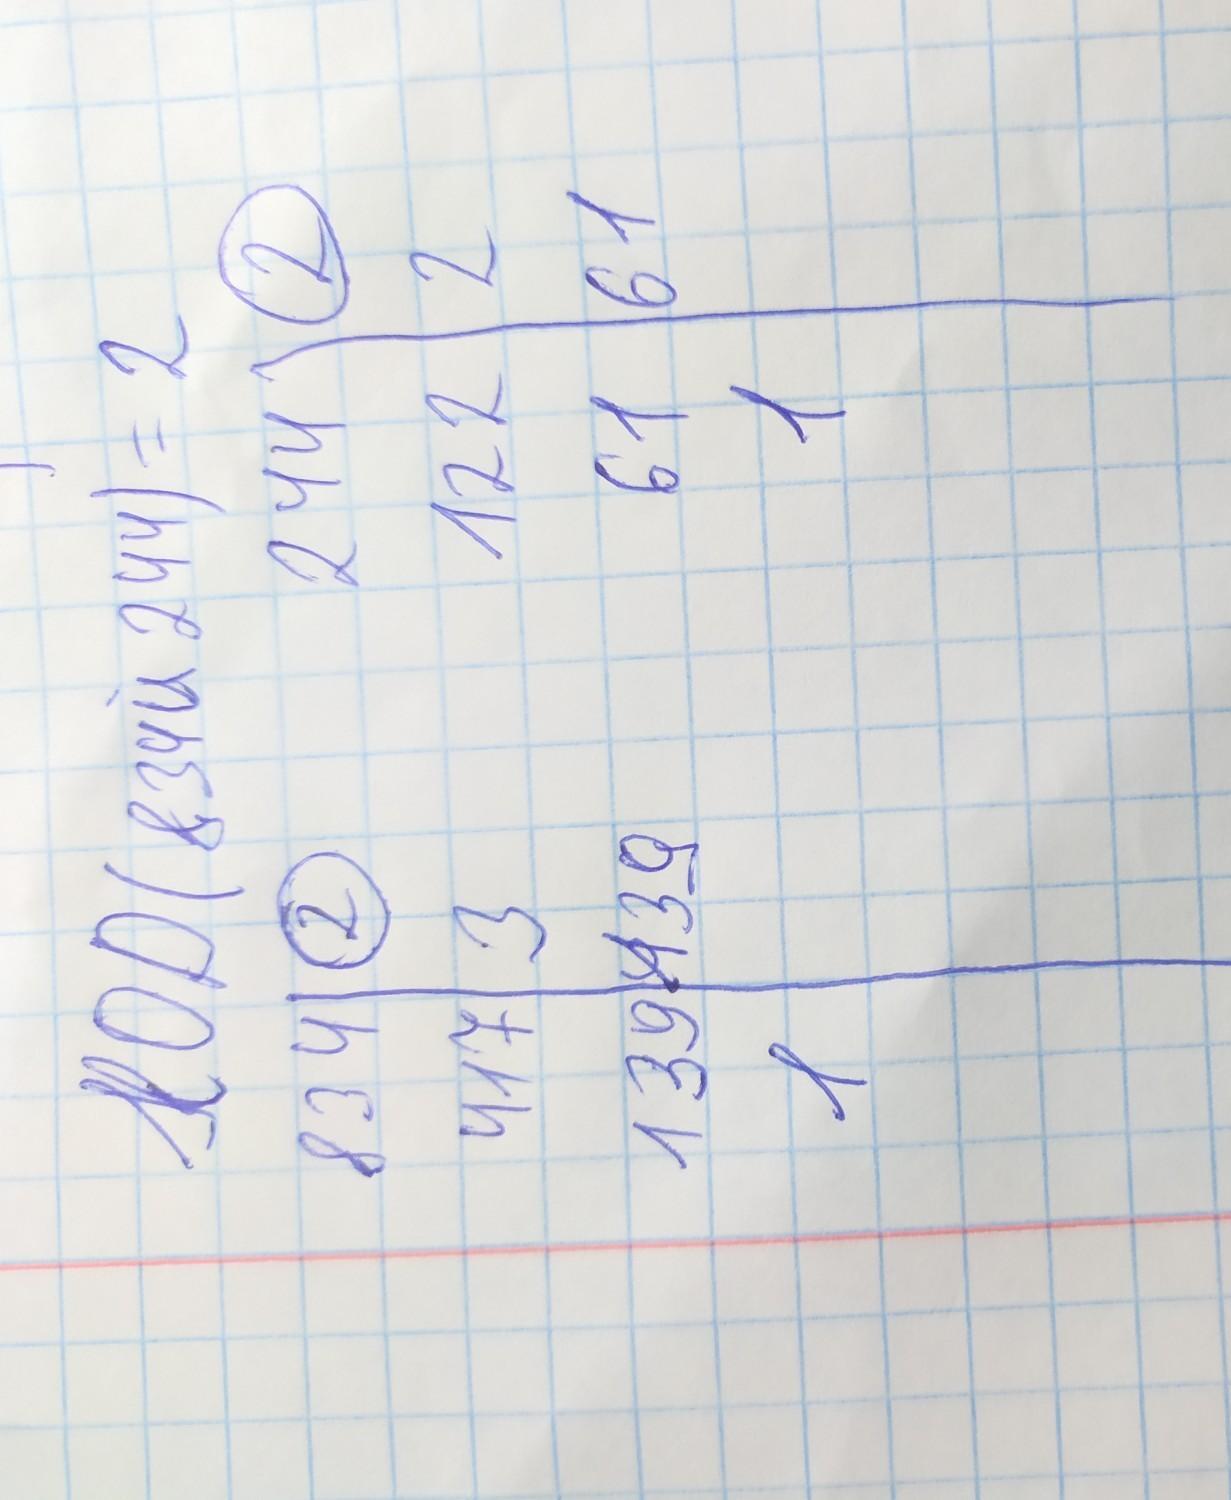 НОД(834 и 244) = 2
834 2 244 2
417 3 122 2
139 139 61 61
1 1